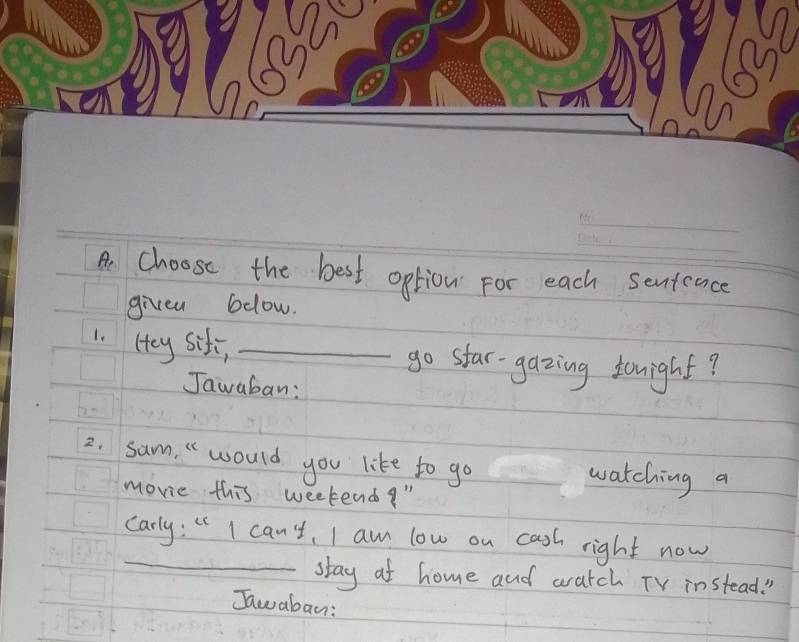 No.
Date :
A. Choose the best option For each sentence
given below.
1. Hey Siti, __________ go star-gazing tonight?
Jawaban:
2. Sam, " would you like to go watching a
movie this weekend?"
Carly: " I can't, I am low on cash right now
__________ stay at home and watch TV instead."
Jawaban: